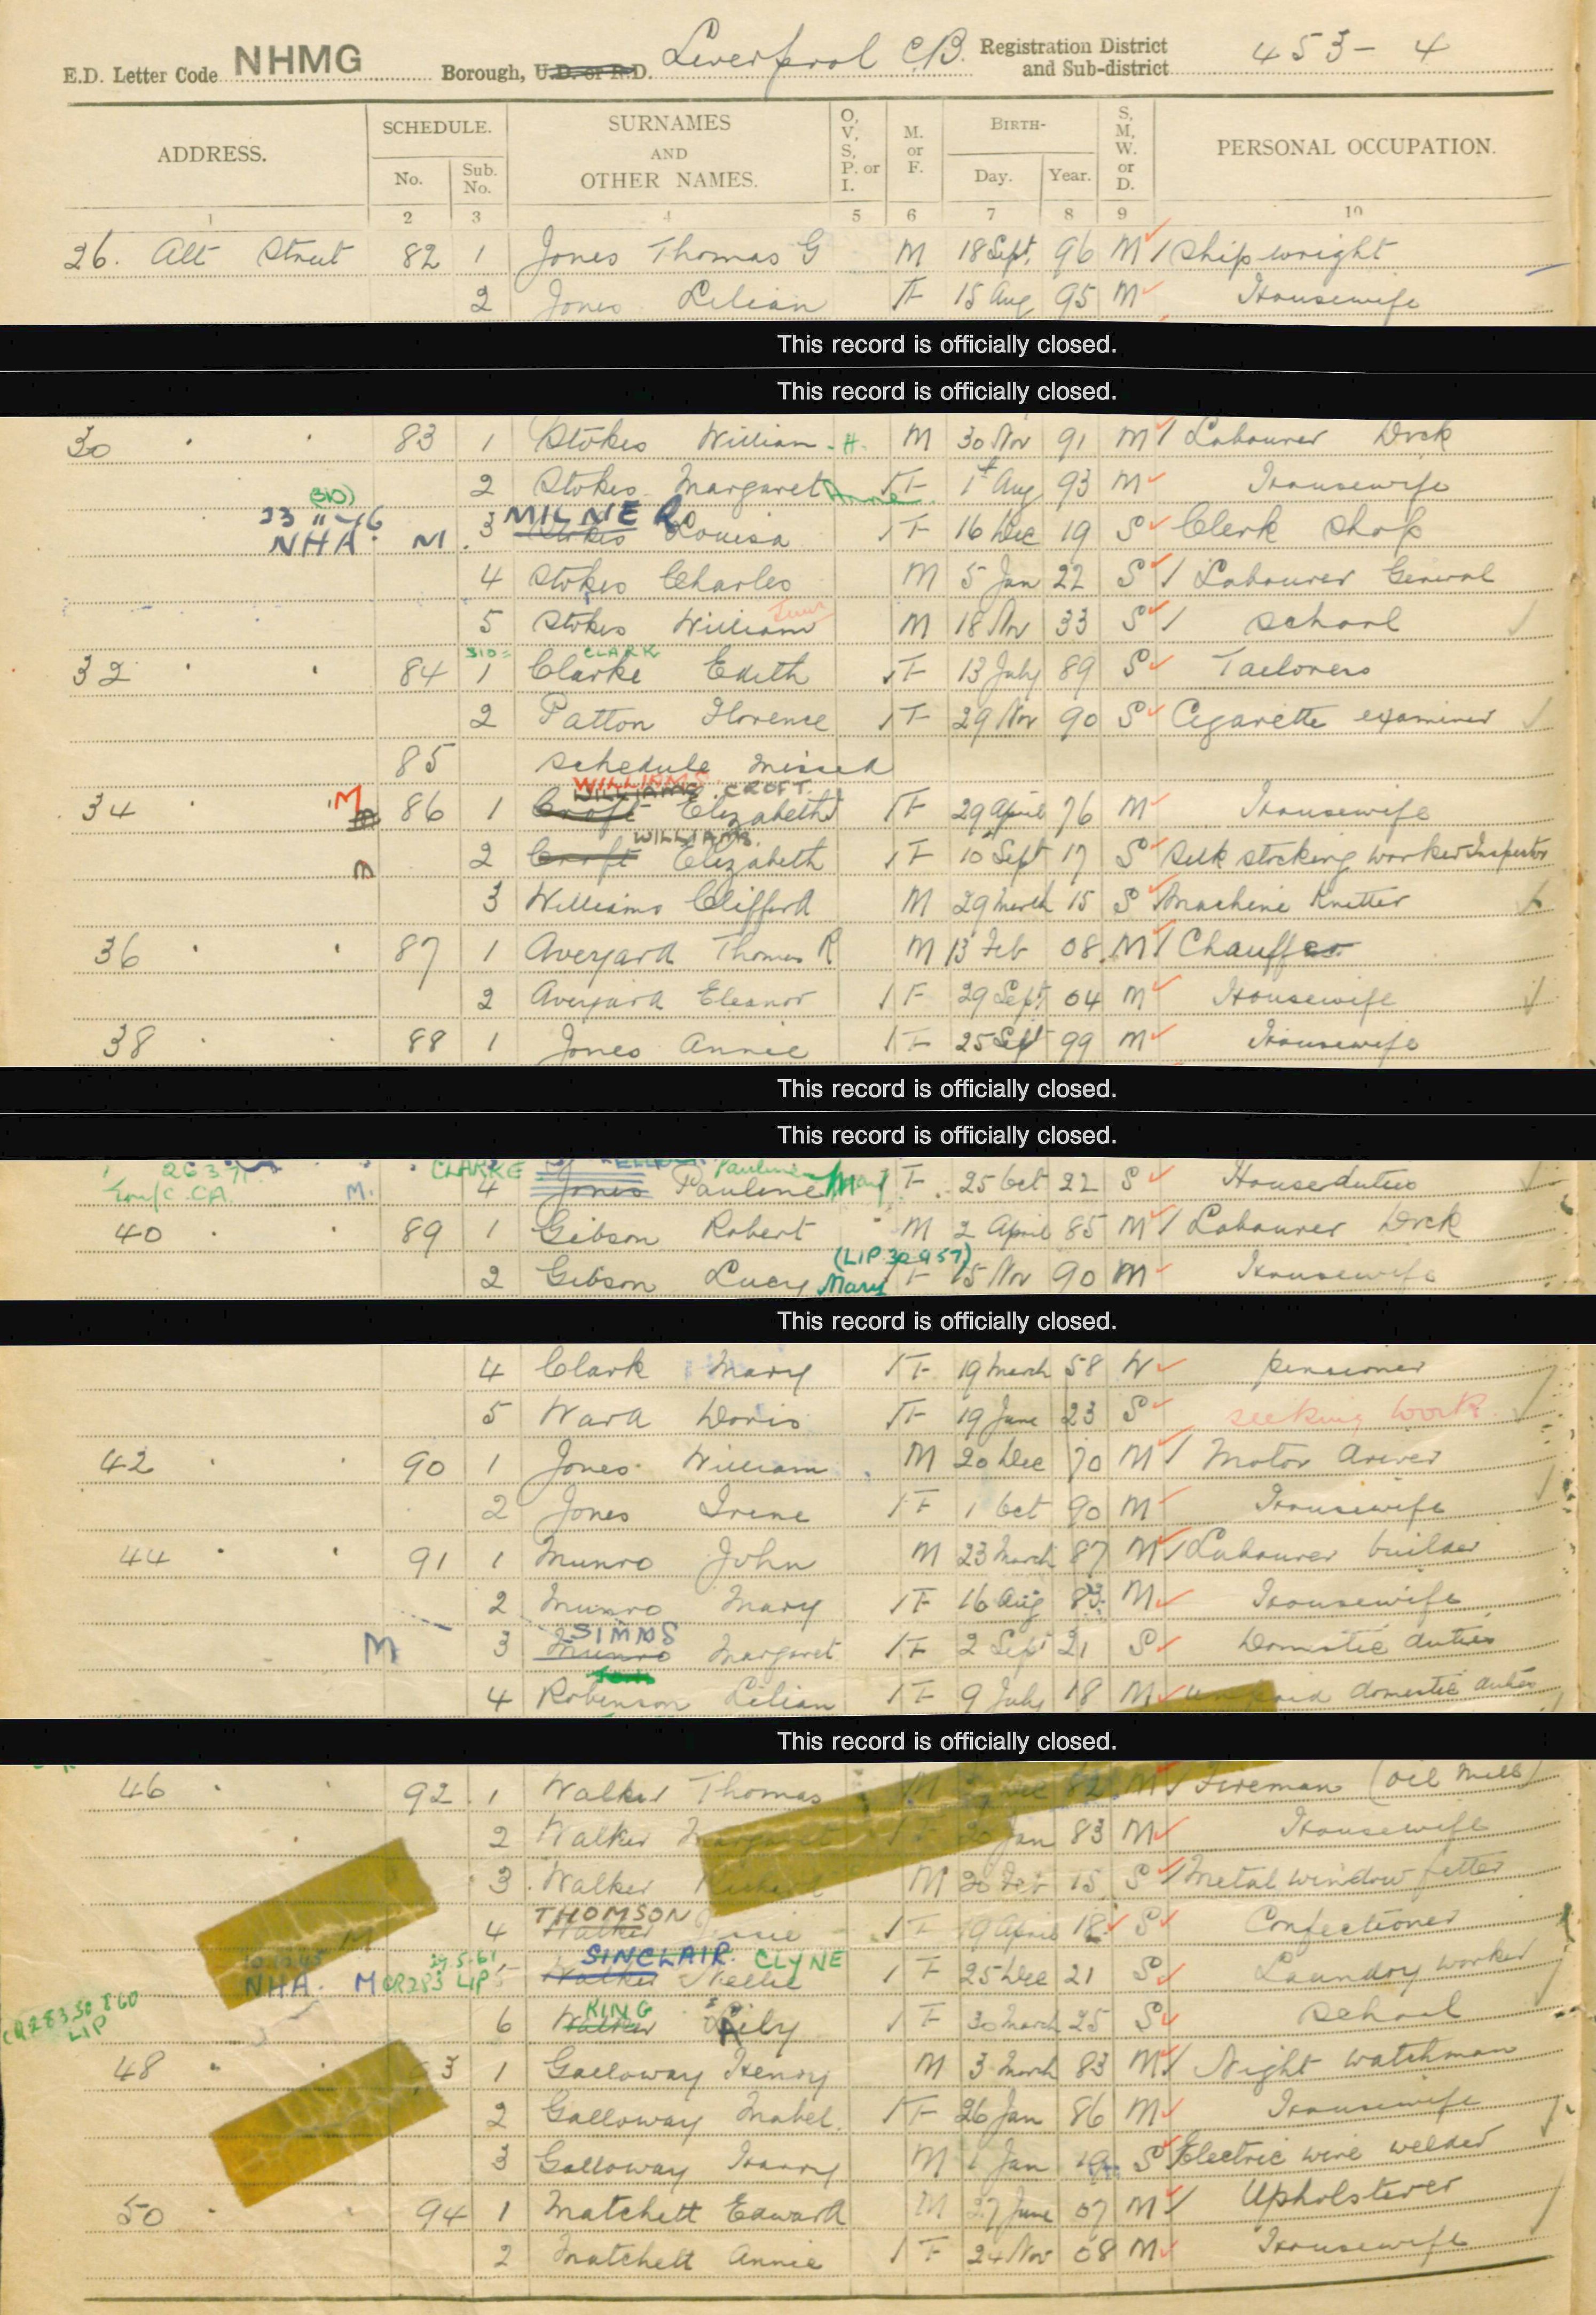 E.D. Letter Code NHMG Borough, U.D. or R.D. Liverpool C.B. Registration District and Sub-district 453- 4
ADDRESS. SCHEDULE. No. Sub. No. SURNAMES AND OTHER NAMES. O, V, S, P. or I. M. or F. BIRTH- Day. Year. S, M, W. or D. PERSONAL OCCUPATION.
1 2 3 4 5 6 7 8 9 10
26. Alt Street 82 1 Jones Thomas G M 18 Sept. 96 M Shipwright
2 Jones Lilian F 15 Aug 95 M Housewife
This record is officially closed.
This record is officially closed.
30 " " 83 1 Stokes William H. M 30 Nov 91 M Labourer Dock
2 Stokes Margaret Anne F 1st Aug 93 M Housewife
(310)
NHA. M. 3 MILNER Stokes Louisa F 16 Dec 19 S Clerk Shop
4 Stokes Charles M 5 Jan 22 S Labourer General
5 Stokes William Junr M 18 Nov 33 S School
310= CLARK
32 " " 84 1 Clarke Edith F 13 July 89 S Tailoress
2 Patton Florence F 29 Nov 90 S Cigarette examiner
85 Schedule Missed
WILLIAMS
WILLIAMS. CROFT.
34 M 86 1 Croft Elizabeth F 29 April 76 M Housewife
WILLIAMS.
2 Croft Elizabeth F 10 Sept 17 S Silk stocking worker Inspector
3 Williams Clifford M 29 March 15 S Machine Knitter
36 " " 87 1 Averyard Thomas R M 13 Feb 08 M Chauffer
2 Averyard Eleanor F 29 Sept 04 M Housewife
38 " " 88 1 Jones Annie F 25 Sept 99 M Housewife
This record is officially closed.
This record is officially closed.
CLARKE Pauline
M. 4 Jones Pauline Mary F 25 Oct 22 S House duties
40 " " 89 1 Gibson Robert M 2 April 85 M Labourer Dock
(LIP 30957)
2 Gibson Lucy Mary F 15 Nov 90 M Housewife
This record is officially closed.
4 Clark Mary F 19 March 58 W pensioner
5 Ward Doris F 19 June 23 S seeking work
42 " " 90 1 Jones William M 20 Dec 70 M Motor driver
2 Jones Irene F 1 Oct 90 M Housewife
44 " " 91 1 Munro John M 23 March 87 M Labourer builder
2 Munro Mary F 16 Aug 83 M Housewife
SIMMS
M 3 Munro Margaret F 2 Sept 21 S Domestic duties
4 Robinson Lilian F 9 July 18 M unpaid domestic duties
This record is officially closed.
46 " " 92 1 Walker Thomas M Dec 82 M Fireman (oil mill)
2 Walker Margaret F 20 Jan 83 M Housewife
3 Walker Richard M 20 Feb 15 S Metal window fitter
THOMSON
4 Walker F 19 April 18 S Confectioner
27.5.61 SINCLAIR. CLYNE
NHA. M CR283 LIP 5 Walker Nellie F 25 Dec 21 S Laundry worker
KING
CR283 30 8 60 LIP 6 Walker Lily F 30 March 25 S School
48 " 3 1 Galloway Henry M 3 March 83 M Night watchman
2 Galloway Mabel. F 26 Jan 86 M Housewife
3 Galloway Harry M 1 Jan 19 S Electric wire welder
50 " " 94 1 Matchett Edward M 27 June 07 M Upholsterer
2 Matchett Annie F 24 Nov 08 M Housewife